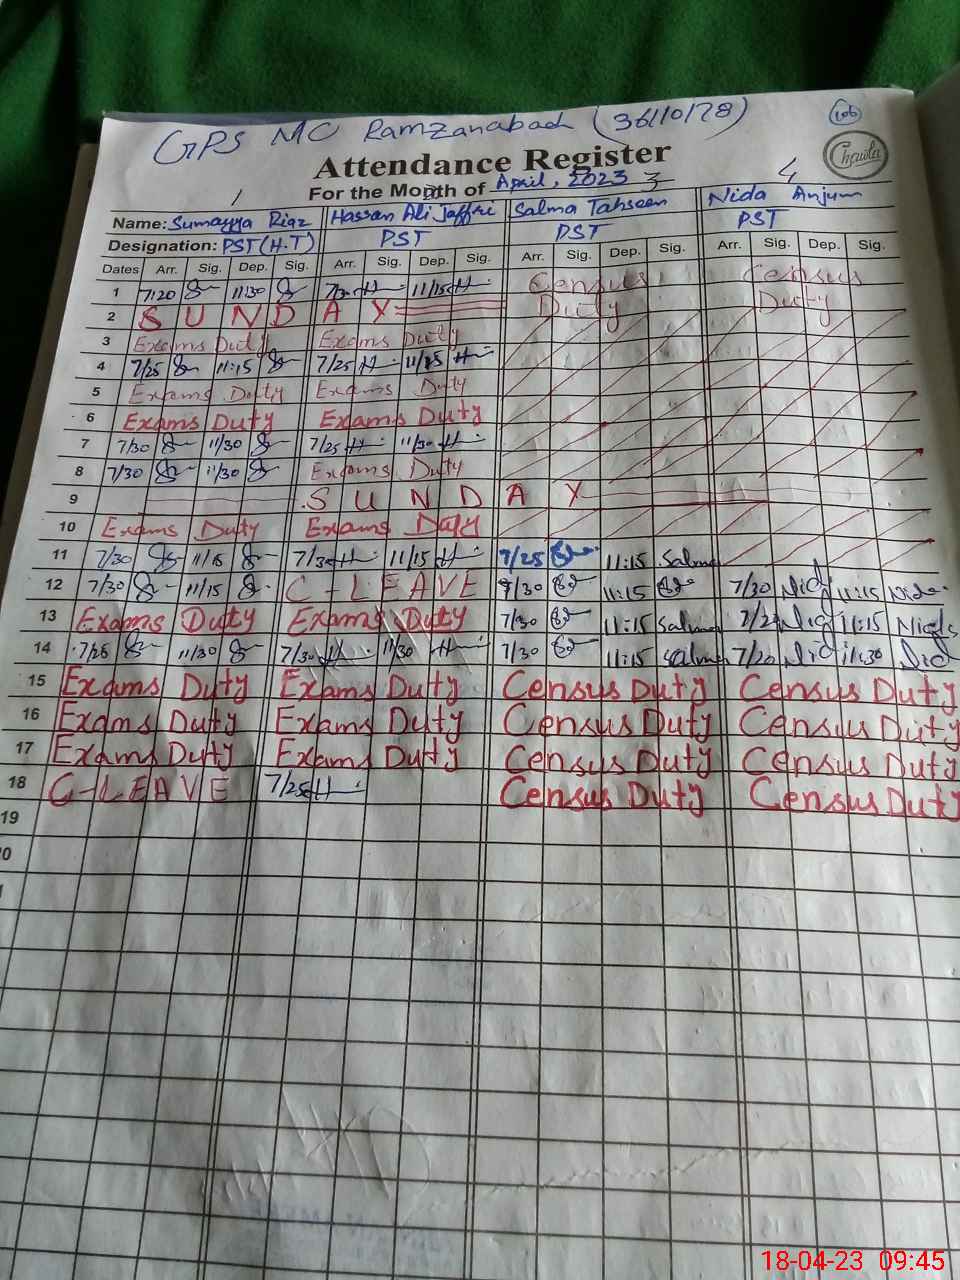 GPS MC Ramzanabad (36110178)
106
Chawla
Attendance Register
For the Month of April, 2023
1 2 3 4
Name: Sumayya Riaz Hassan Ali Jaffri Salma Tahseen Nida Anjum
Designation: PST(H.T) PST PST PST
Dates Arr. Sig. Dep. Sig. Arr. Sig. Dep. Sig. Arr. Sig. Dep. Sig. Arr. Sig. Dep. Sig.
1 7:20 11:30 7/30 11/15 Census Duty Census Duty
2 S U N D A Y
3 Exams Duty Exams Duty
4 7/25 11:15 7/25 11/25
5 Exams Duty Exams Duty
6 Exams Duty Exams Duty
7 7/30 11/30 7/25 11/30
8 7/30 11/30 Exams Duty
9 S U N D A Y
10 Exams Duty Exams Duty
11 7/30 11/15 7/30 11/15 7/25 11:15 Salma
12 7/30 11/15 C-LEAVE 7/30 11:15 7/30 Nid 11:15 Nida
13 Exams Duty Exams Duty 7/30 11:15 Salma 7/25 Nid 11:15 Nida
14 7/25 11/30 7/30 11/30 7/30 11:15 Salma 7/20 Nid 11:30 Nid
15 Exams Duty Exams Duty Census Duty Census Duty
16 Exams Duty Exams Duty Census Duty Census Duty
17 Exams Duty Exams Duty Census Duty Census Duty
18 C-LEAVE 7/25 Census Duty Census Duty
19
0
18-04-23 09:45